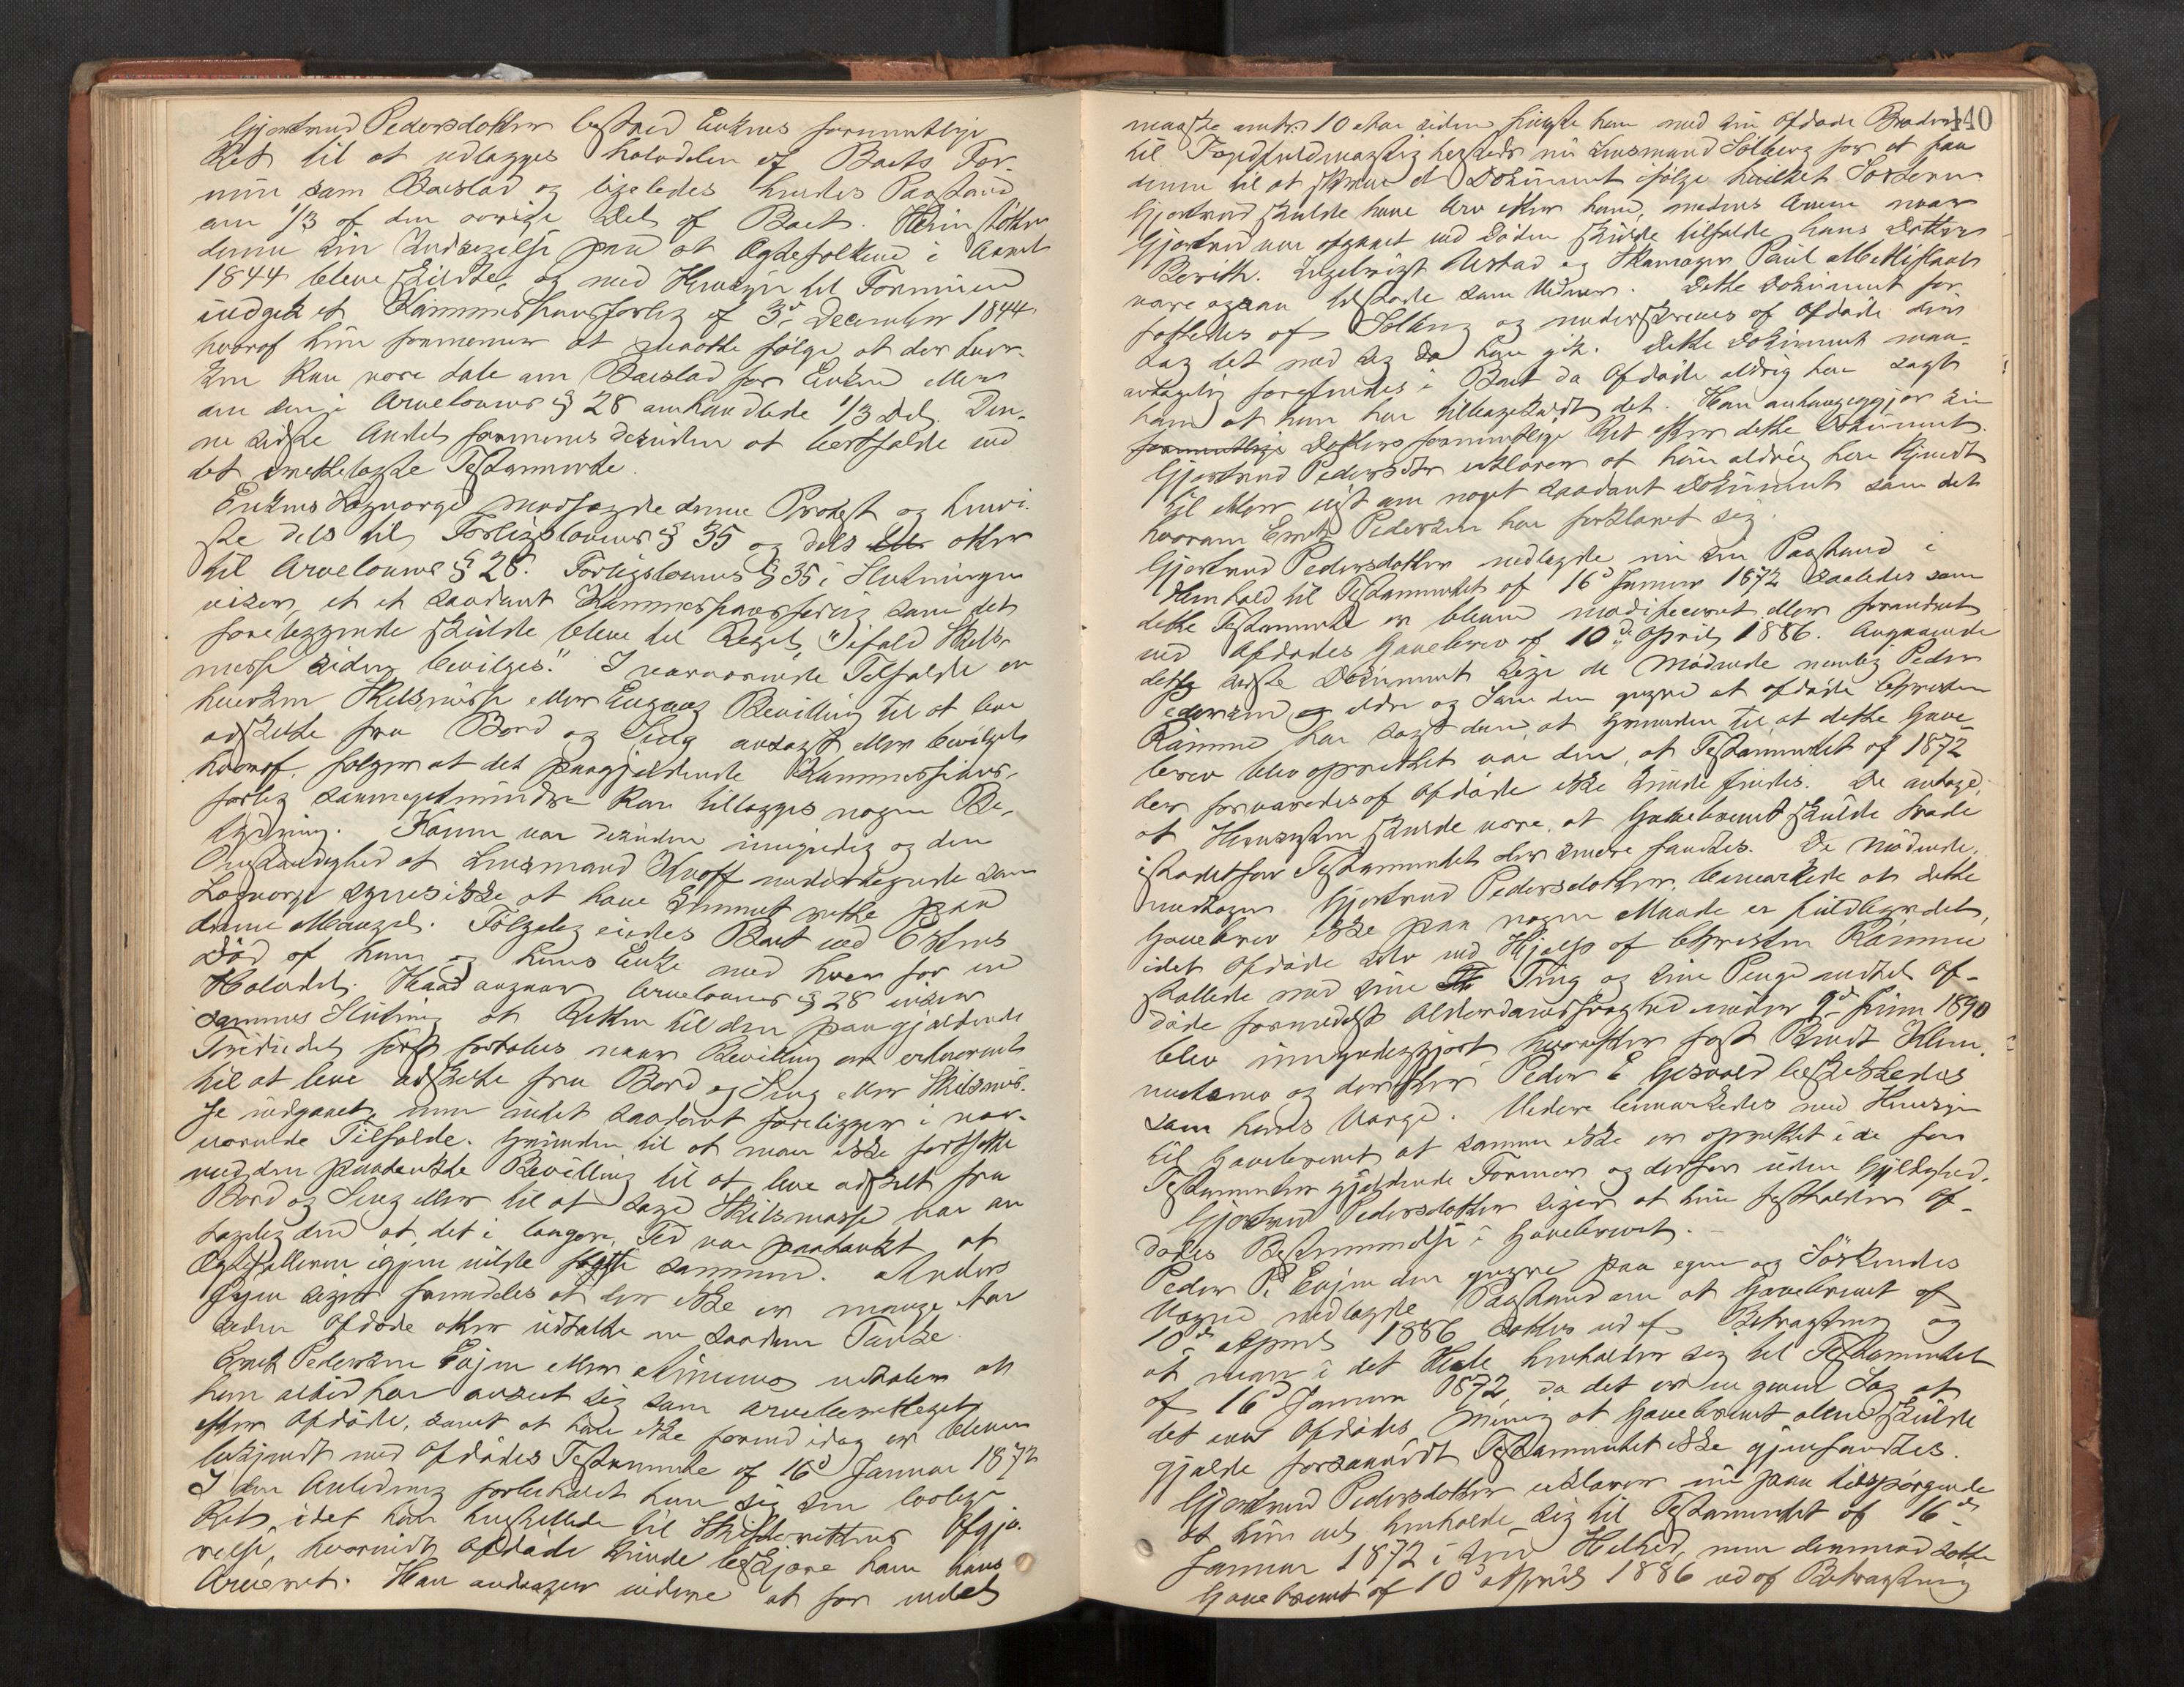 Gjertrud Pedersdotter bestred Enkens formentlige
Ret til at udlægges halvdelen af Boets For-
mue som Boeslod og ligeledes hendes Paastand
om 1/3 af den øvrige Del af Boet. Hun støtter
denne sin Indsigelse paa at Ægtefolkene i Aaret
1844 bleve skildte, og med Hensyn til Formuen
indgik et Kammershusforlig af 3d December 1844
hvoraf hun formener at maatte følge, at der hver-
ken kan være Tale om Boeslod for Enken eller
om den i Arvelovens § 28 omhandlede 1/3 Del. Den-
ne sidste Andel formenes desuden at bortfalde ved
det fremlagte Testamente.
Enkens Lagværge modsagde denne Protest og henvi-
ste dels til Forligslovens § 35 og dels atter
til Arvelovens § 28. Forligslovens § 35 i Slutningen
viser, at et saadant Kammershusforlig som det
foreliggende skulde blive til Regel, "ifald Skils-
misse siden bevilges." I nærværende Tilfælde er
hverken Skilsmisse eller Engang Bevilling til at leve
adskilte fra Bord og Seng ansøgt eller bevilget
hvoraf følger at det paagjældende Kammershus-
forlig saameget mindre kan tillægges nogen Be-
tydning. Konen var desuden umyndig og den
Omstændighed at Lensmand Knoff undertegnede som
Lagværge synes ikke at have kunnet rette paa
denne Mangel. Følgelig eiedes Boet ved Estens
Død af ham og hans Enke med hver for en
Halvdel. Hvad angaar Arvelovens § 28 viser
sammes Slutning at Retten til den paagjældende
Trediedel først fortabes naar Bevilling er erhvervet
til at leve adskilte fra Bord og Seng eller Skilsmis-
se indgaaet, men intet saadant foreligger i nær-
værende Tilfælde. Grunden til at man ikke fortsatte
med den paatænkte Bevilling til at leve adskilt fra
Bord og Seng eller til at søge Skilsmisse var an-
tagelig den at det i længere Tid var paatænkt at
Ægtefællerne igjen vilde flytte sammen. Anders
Øyen siges fremdeles at der ikke er mange Aar
siden Afdøde atter udtalte en saadan Tanke.
Erik Pedersen Eujen eller udtaler at
han altid har anseet sig som arveberettiget
efter Afdøde, samt at han ikke førend idag er bleven
bekjendt med Afdødes Testamente af 16d Januar 1872
I den Anledning forbeholdt han sig sin lovlige
Ret, idet han henstillede til Skifterettens Afgjø-
relse, hvorvidt Afdøde kunde beskjære ham hans
Arveret. Han andrager videre at for indtil
140
maaske omtr. 10 Aar siden fulgte han med sin afdøde Broder
til Fogedfuldmægtig hersteds nu Lensmand Solberg for at faa
denne til at skrive et Dokument ifølge hvilket Søsteren
Gjertrud skulde have Arv efter ham, medens Arven naar
Gjertrud var afgaaet ved Døden skulde tilfalde hans Datter
Berith. Ingebrigt Ustad og Skomager Paul
vare ogsaa tilstede som Vidner. Dette Dokument for-
fattedes af Solberg og underskreves af Afdøde, der
tog det med sig da han gik. Dette Dokument maa
antagelig forefindes i Boet da Afdøde aldrig har sagt
ham at han har tilbagekaldt det. Han anhængiggjør sin
Datters formentlige Ret efter dette Dokument.
Gjertrud Pedersdtr erklærer at hun aldrig har kjendt
til eller vidst om noget saadant Dokument som det
hvorom Erik Pedersen har forklaret sig.
Gjertrud Pedersdotter nedlagde nu sin Paastand i
Henhold til Testamentet af 16d Januar 1872 saaledes som
dette Testamente er bleven modificeret eller forandret
ved Afdødes Gavebrev af 10de April 1886. Angaaende
dette sidste Dokument sige de Mødende nemlig Peder
Pedersen og ældre og samme den yngre at afdøde Christen
Rømme har sagt dem, at Grunden til at dette Gave-
brev blev oprettet var den, at Testamentet af 1872
der forvaredes af Afdøde ikke kunde findes. De antage,
at Hensigten skulde være at Gavebrevet skulde træde
istedetfor Testamentet der senere fandtes. De Mødende,
undtagen Gjertrud Pedersdotter, bemærkede at dette
Gavebrev ikke paa nogen Maade er fuldbyrdet,
idet Afdøde selv ved Hjælp af Christen Rømme
skaltede med sine Ting og sine Penge indtil Af-
døde formedelst Alderdomssvaghed under 9d Juni 1890
blev umyndiggjort hvorefter først Bendt Klem-
metsmo og derefter Peder E Gisvold beskikkedes
som hans Værge. Videre bemærkedes med Hensyn
til Gavebrevet at samme ikke er oprettet i de for
Testamenter gjældende Former og derfor uden Gyldighed.
Gjertrud Pedersdotter siger at hun fastholder Af-
dødes Bestemmelse i Gavebrevet. -
Peder P. Eujen den yngre paa egne og Søskendes
Vegne nedlagde Paastand om at Gavebrevet af
10de April 1886 sættes ud af Betragtning og
at man i det Hele henholder sig til Testamentet
af 16d Januar 1872, da det er en given Sag at
det var Afdødes Mening at Gavebrevet alene skulde
gjælde forsaavidt Testamentet ikke gjenfandtes.
Gjertrud Pedersdotter erklærer nu paa Tilspørgende
at hun vil henholde sig til Testamentet af 16de
Januar 1872 i sin Helhed, men dermed sætte
Gavebrevet af 10d April 1886 ud af Betragtning